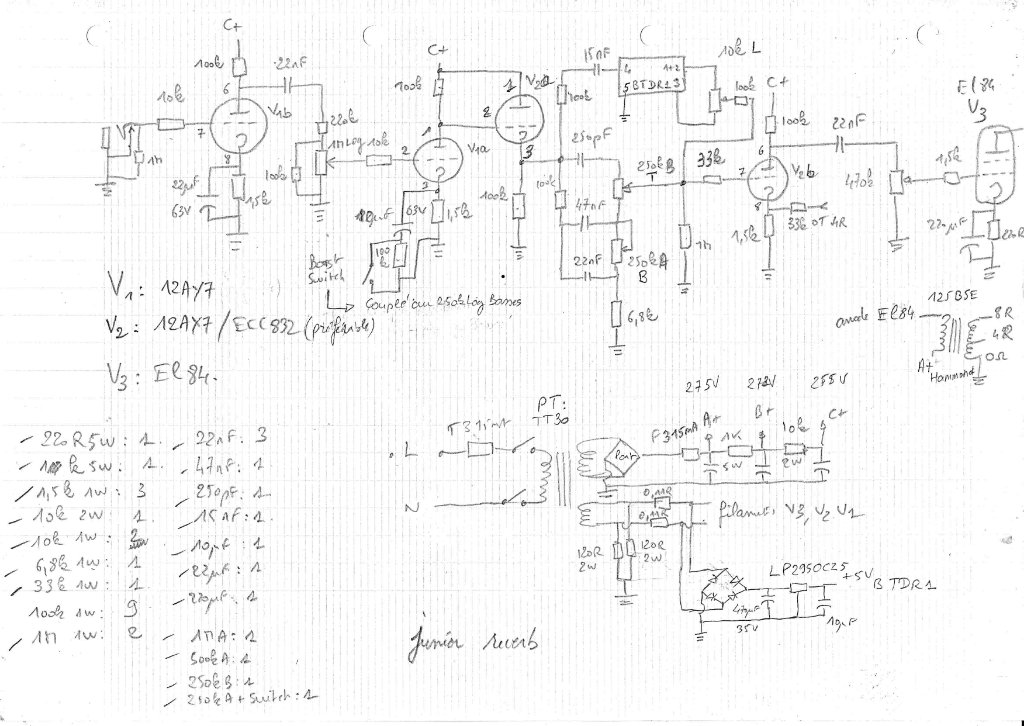 C+
100k
6
22nF
10k
7
V1b
8
1M
22µF
63V
1,5k
220k
1M Log
100k
10k
C+
100k
1
2
V1a
3
63V
1,5k
100
k
Boost
Switch
Couplé au 250k Log Basses
1
2
V2a
3
100k
15nF
100k
4
1+2
5 BTDR1 3
10k L
100k
250pF
100k
47nF
22nF
250k B
T
250k A
B
6,8k
33k
1M
C+
100k
6
7
V2b
8
1,5k
33k OT 4R
22nF
470k
1,5k
El84
V3
220µF
220R
V1: 12AY7
V2: 12AX7 / ECC832 (préférable)
V3: El84.
125BSE
anode El84
8R
4R
0Ω
A+
Hammond
220R 5w: 1
1k 5w: 1
1,5k 1w: 3
10k 2w: 1
10k 1w: 2
6,8k 1w: 1
33k 1w: 1
100k 1w: 9
1M 1w: 2
22nF: 3
47nF: 1
250pF: 1
15nF: 1
10µF: 1
22µF: 1
220µF: 1
1MA: 1
500kA: 1
250kB: 1
250kA + Switch: 1
L
N
T 315mA
PT:
TT30
Pont
F 315mA
275V
A+
1K
5W
B+
10k
2W
255V
C+
0,11R
0,11R
filament V3, V2 V1
120R
2W
120R
2W
LP2950C25
+5V
BTDR1
47µF
35V
10µF
junior reverb